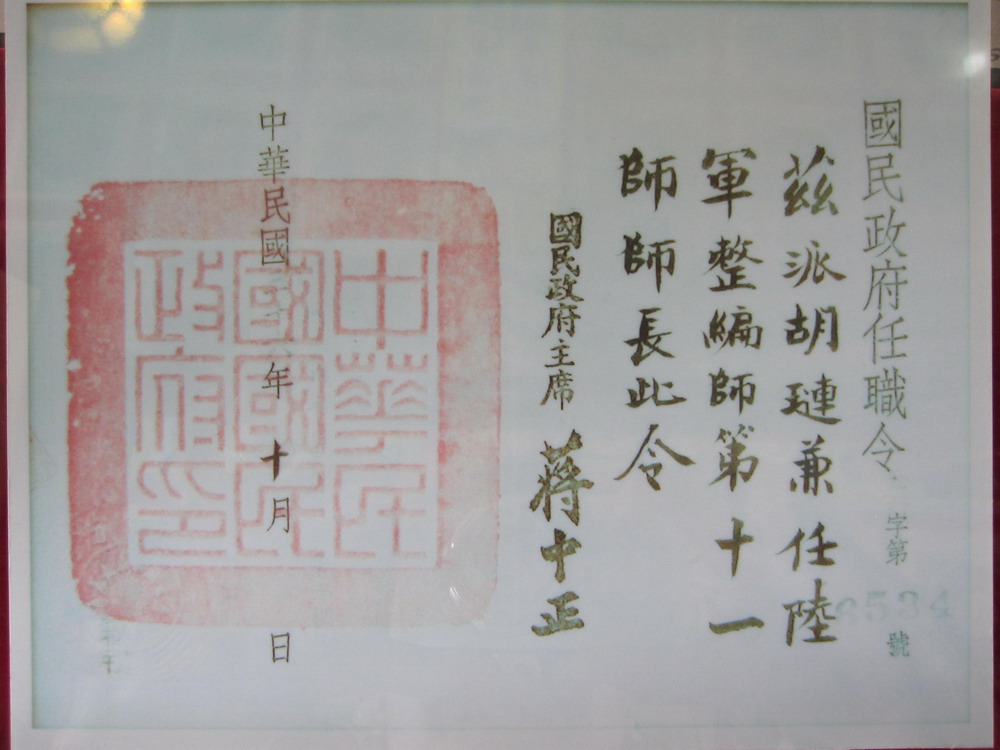 國民政府任職令
字第 534 號
茲派胡璉兼任陸
軍整編師第十一
師師長此令
國民政府主席 蔣中正
中華民國 年 十月 日
中華民
國國民
政府印